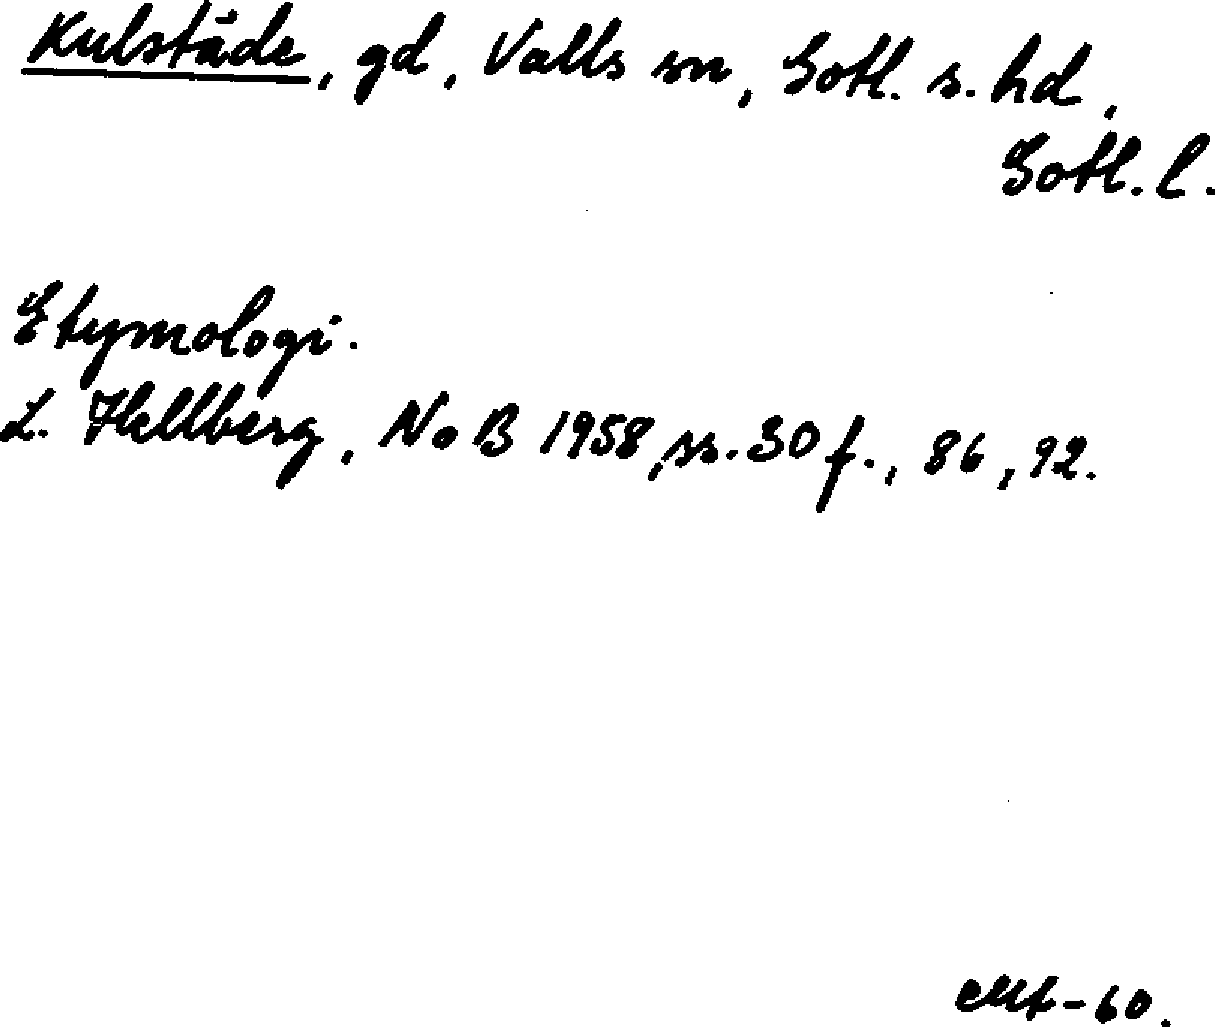 Kulstäde, gd, Valls sn, Gotl. s. hd,
Gotl. l.
Etymologi.
L. Hellberg, NoB 1958, ss. 30 f., 86, 92.